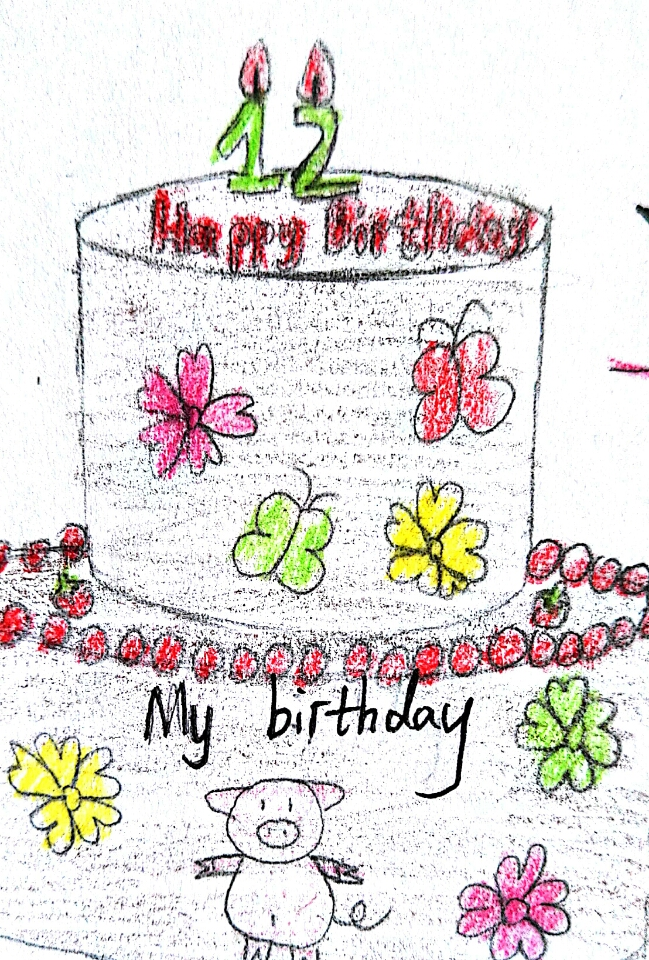 12
Happy Birthday
My birthday